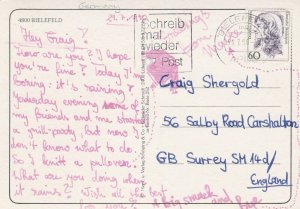 4800 BIELEFELD
Hey Craig!
How are you? I hope
you're fine? Today I'm
boring: it's raining!
Yesterday evening some of
my friends and me started
a grill-party, but now I
don't know what to do.
So I knitt a pullover.
What are you doing when
it rains? Wish all the best
for you!
A big smack and
schreib
mal
wieder
Post
60
Craig Shergold
56 Salby Road Carshalton
GB Surrey SM 1 4d/
England